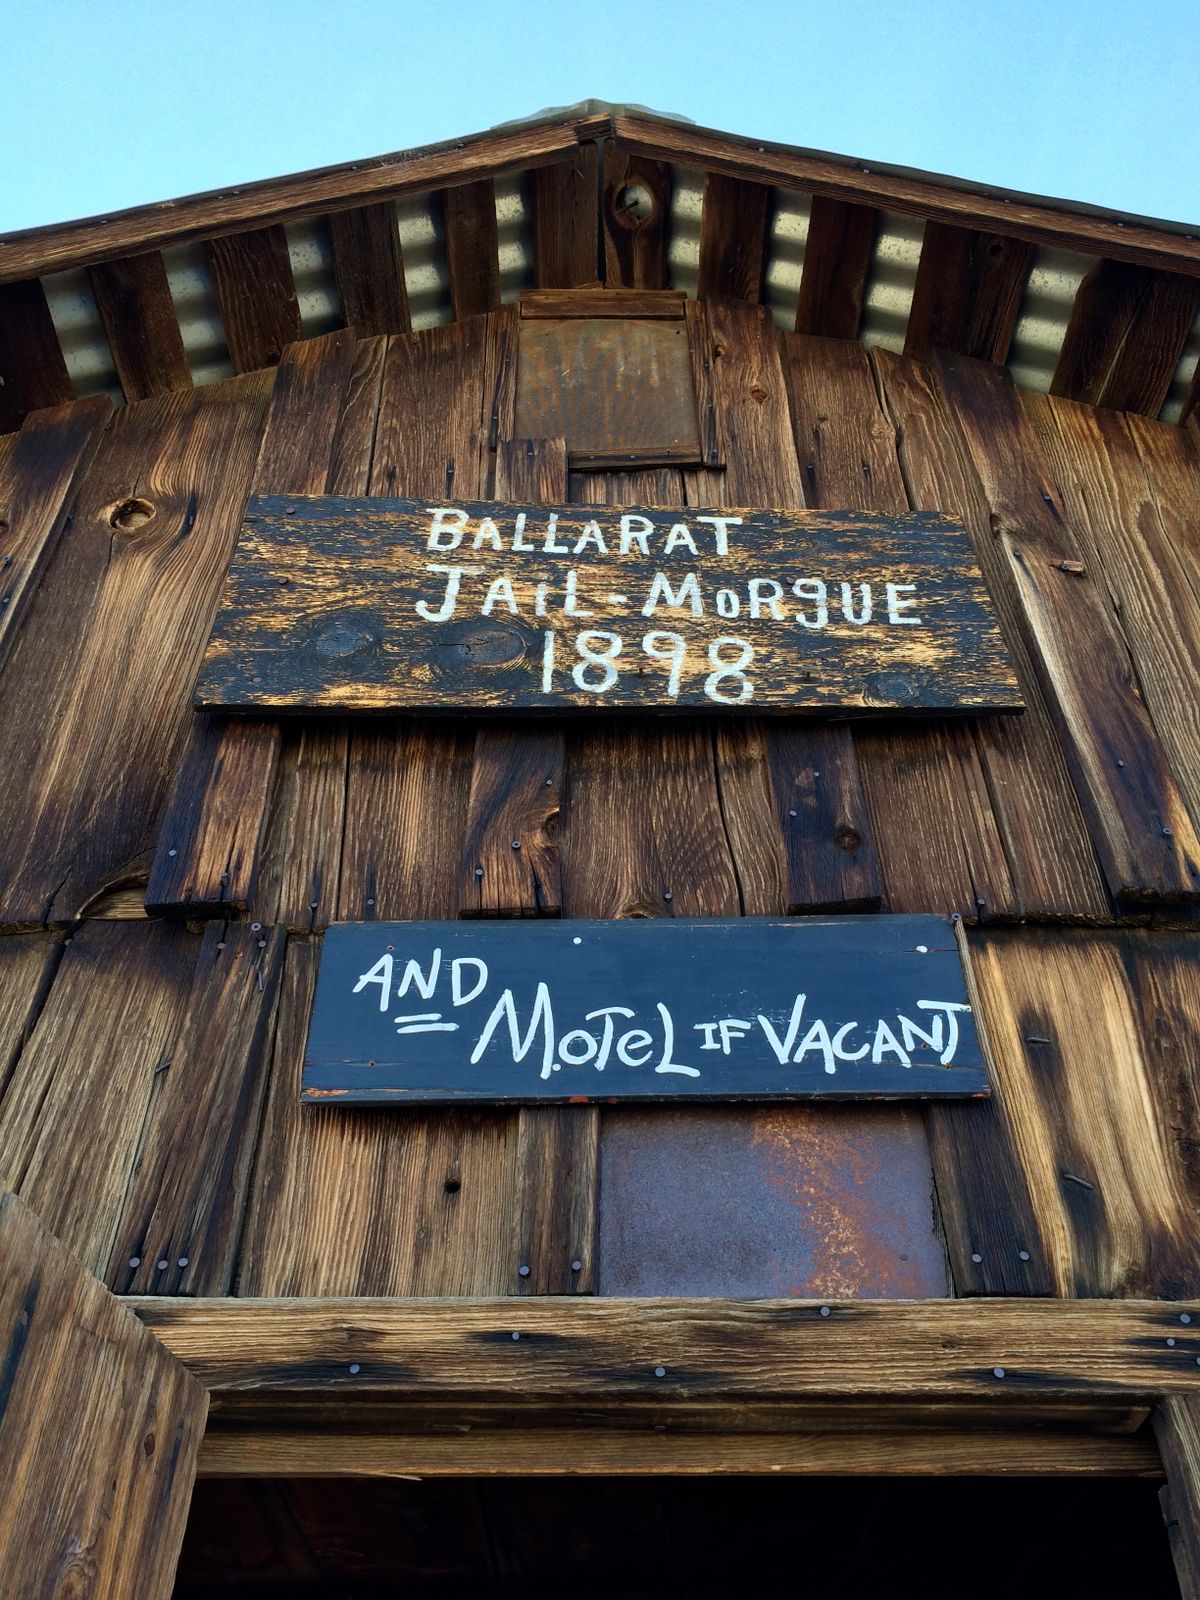 BALLARAT
JAiL-MoRgUE
1898
AND
MOTeL IF VACANT